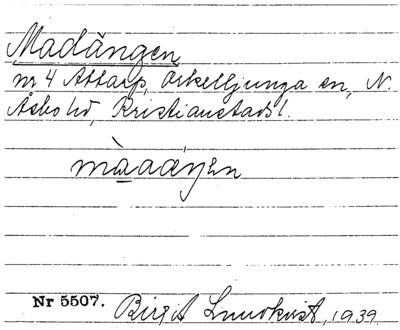 Madängen
nr 4 Attarp, Örkelljunga sn, N.
Åsbo hd, Kristianstads l.
Nr 5507. Birgit Lundkvist, 1939